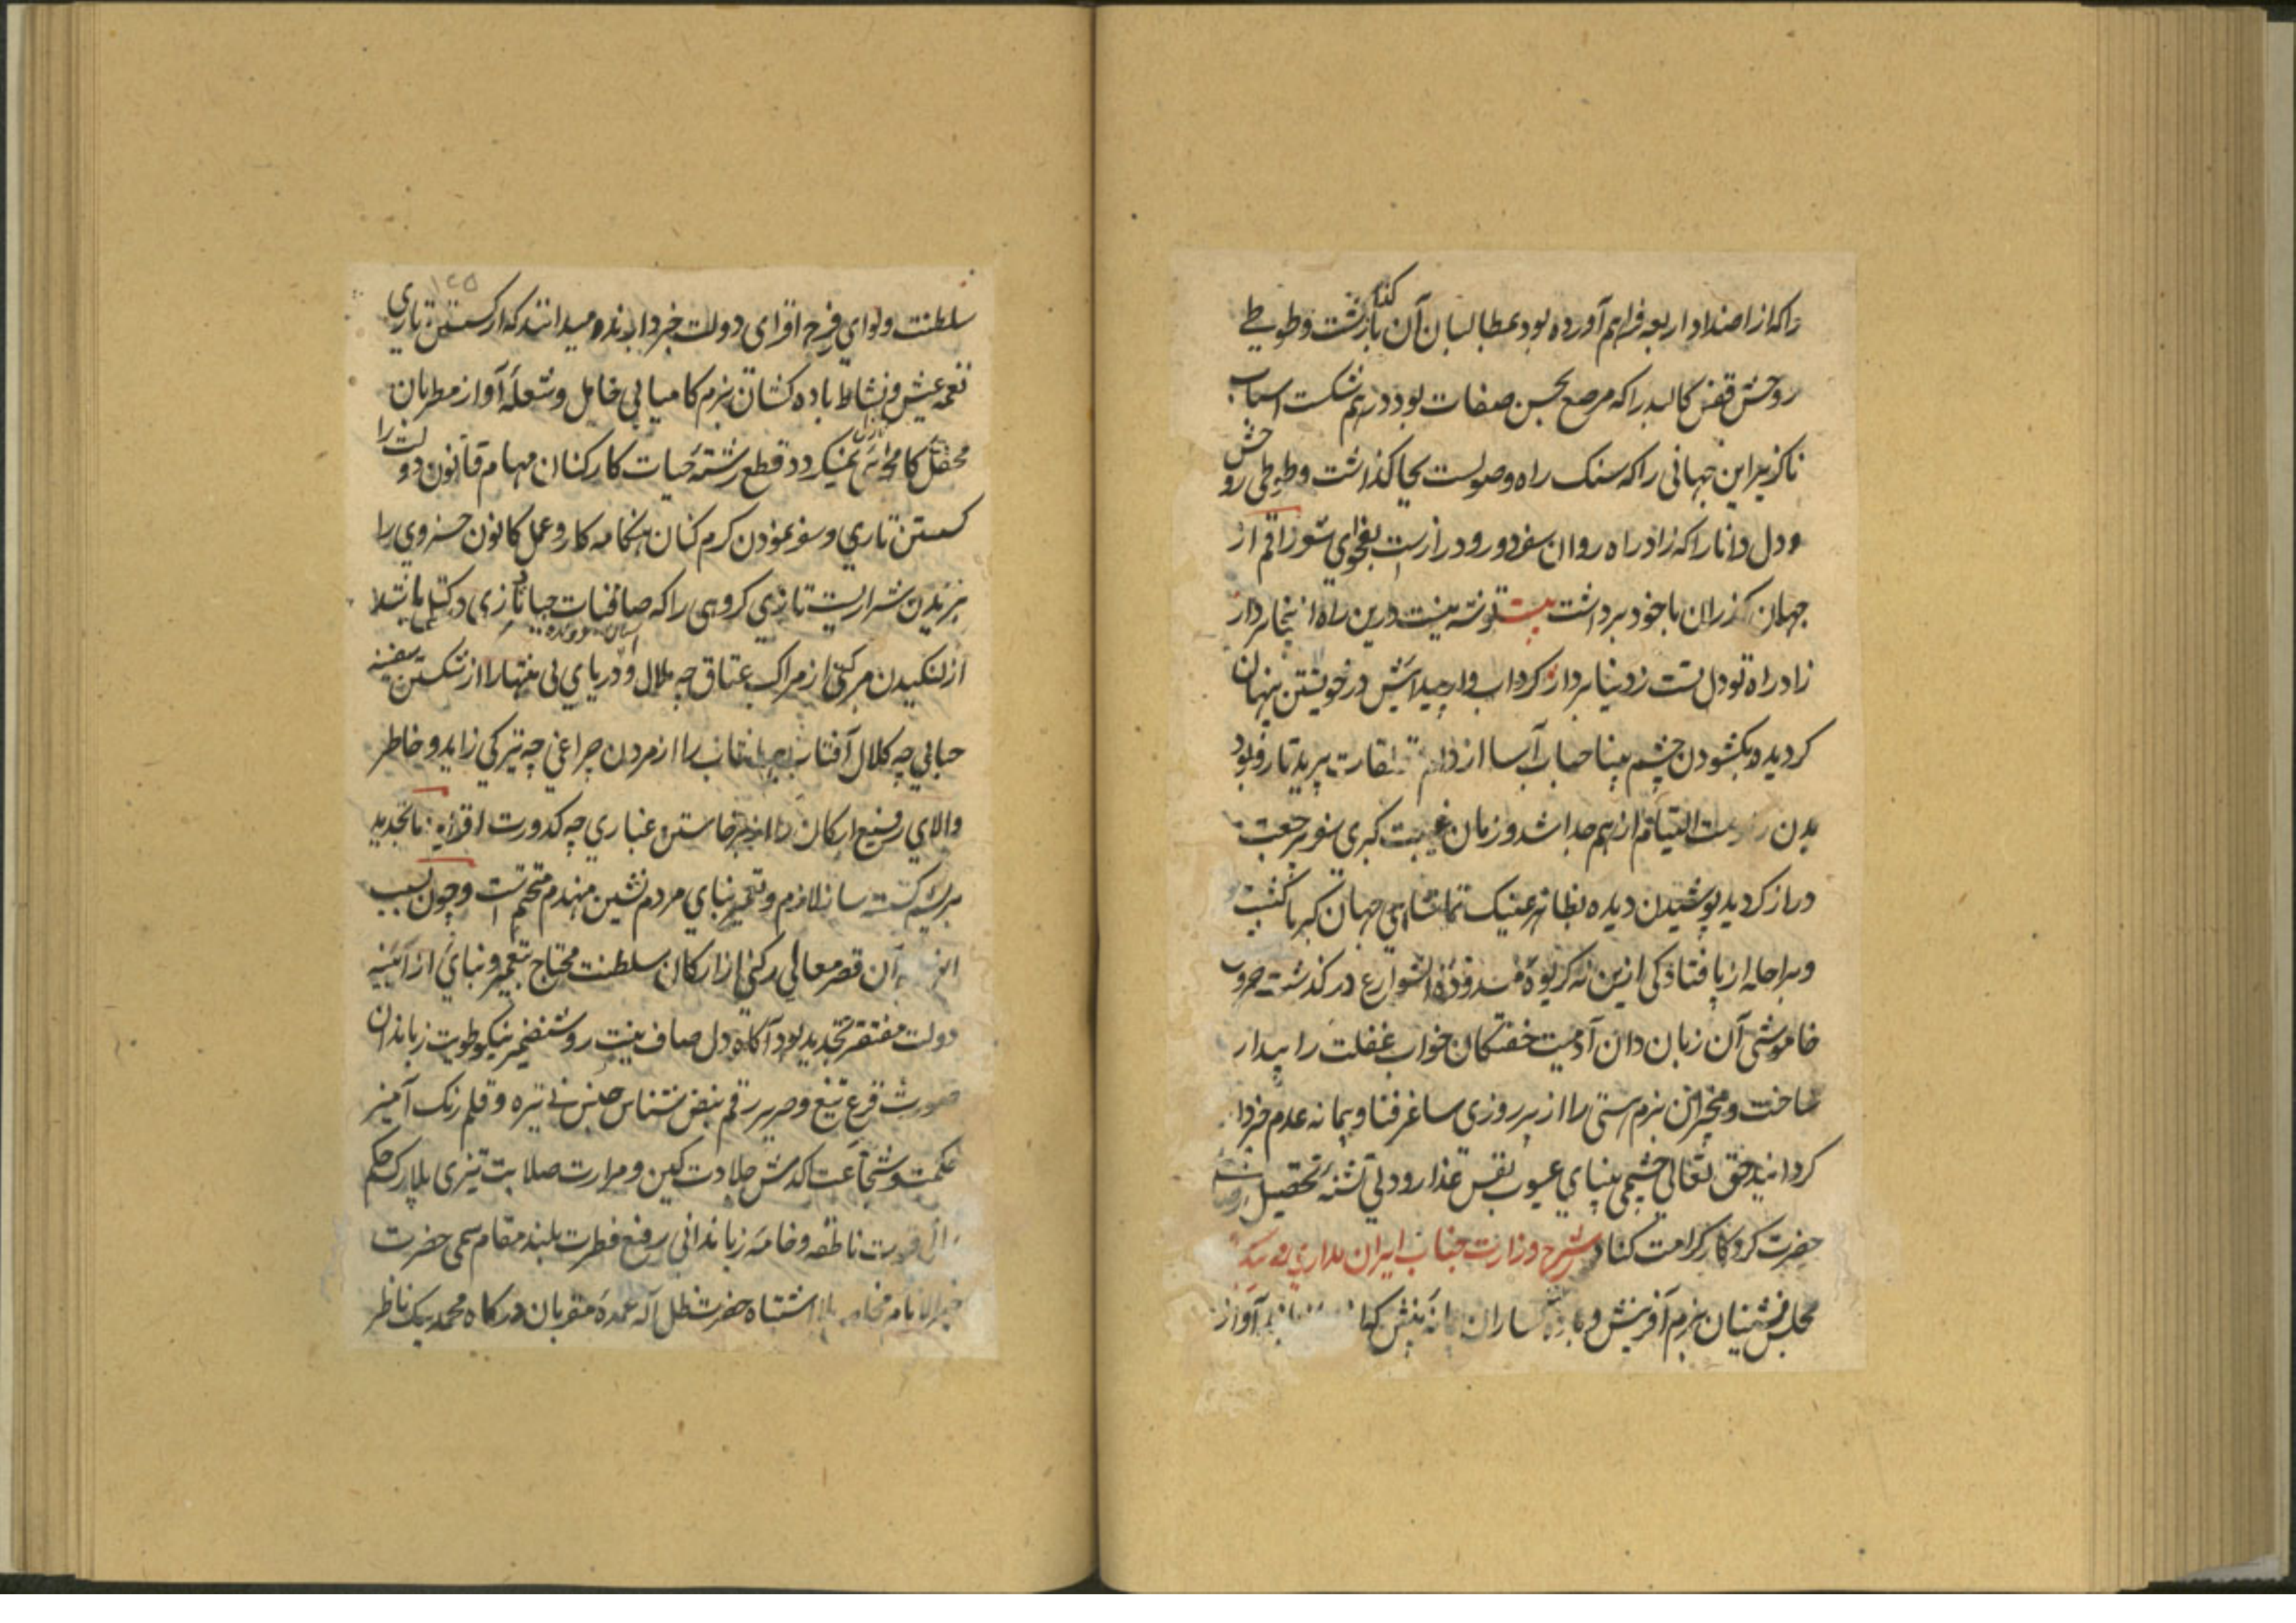 راکه از اضداد اربعه فراهم آورده بود بمطالبان آن بازگذاشت و طوطی
روحش قفس کالبد را که مرصع بحسن صفات بود درهم شکست اسباب
ناکزیر این جهانی را که سنک راه وصولست بجا کذاشت و طوطی روحش
و دل دانا را که زاد راه روان سفر دور و دراز است بفحوای شعر راقم از
جهان کذران با خود برداشت بیت توشه نیست درین راه از ینجا بردار
زاد راه تو دل تست ز دنیا بردار کرداب وار پیدایش در خویشتن پنهان
کردیده بکشودن چشم بینا حباب آسا از پرید تار و پود
بدن التیام از هم جدا شد و زمان غیبت کبری سفر پر تعب
دراز کردید پوشیدن دیده بظاهر عینک تماشای جهان کبریا کشت
و براحله از پا فتادکی ازین نه کریوهٔ مسدودة الشوارع درکذشت حروب
خاموشی آن زبان دان آدمیت خفتکان خواب غفلت را بیدار
ساخت و مخبران بزم هستی را از پر روزی ساغر فنا و پیمانه عدم خبردار
کردانید حق تعالی چشمی بینای عیوب نفس غدار و دلی تشنهٔ تحصیل رضای
حضرت کردکار کرامت کناد شرح وزارت جناب ایران مداری محمد بیک
مجلس نشینان بزم آفرینش و باده کساران آواز
۱۲۵
سلطنت و لوای فرح افزای دولت خبردارند و میدانند که از کسستن تاری
نغمه عیش و نشاط باده کشان بزم کامیابی خامل و شعلهٔ آواز مطربان
محفل کامرانی نمیکردد قطع رشتهٔ حیات کارکنان مهام قانون دولت را
کسستن تاری و سفر نمودن کرم کنان هنکامه کار و عمل کانون خسروی را
پریدن شراریست تازی کروهی را که صافنات جیاد تازی در کتل باشد
از لنکیدن مرکبی از مراکب عتاق چه ملال و دریای بی منتها را از شکستن سفینه
حبابی چه کلال آفتاب جهانتاب را از مردن چراغی چه تیرکی زاید و خاطر
والای رفیع ارکان را از برخاستن غباری چه کدورت افزاید تا تجدید
بریشم کسسته ساز لازم و تعمیر بنای مردم نشین منهدم متحتم است و چون بسبب
آن قصر معالی رکنی از ارکان سلطنت محتاج بتعمیر و بنای از آئینه
دولت مفتقر بتجدید بود آکاه دل صاف نیت روشنضمیر نیکو طویت زباندان
صورت قرع تیغ و صریر رقم نبض شناس جنبش نی نیزه و قلم رنک آمیز
حکمت و شجاعت جلادت کین و مرارت صلابت تیزی بلارک حکم
ناطقه و خامه زباندانی رفیع فطرت بلند مقام سمی حضرت
خیر الانام مخاطب بلا اشتباه حضرت ظل اله عمدهٔ مقربان درکاه محمد بیک ناظر